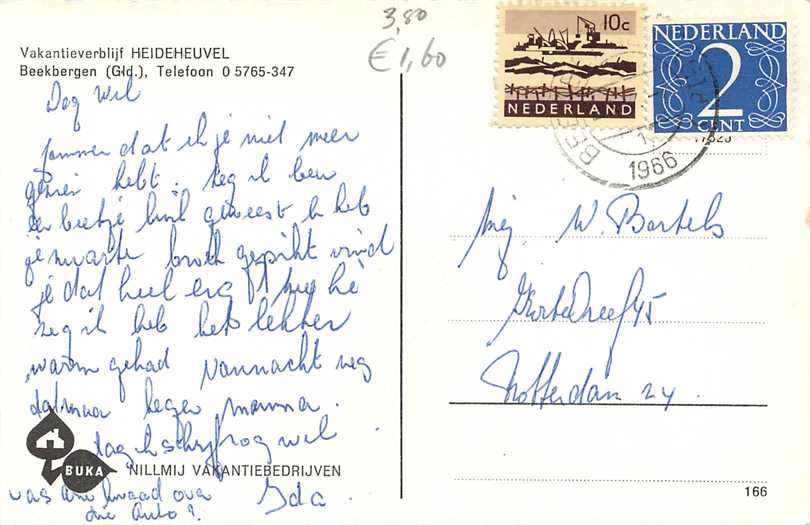 3,80
€1,60
10c
NEDERLAND
NEDERLAND
2
CENT
1966
Vakantieverblijf HEIDEHEUVEL
Beekbergen (Gld.), Telefoon 0 5765-347
Dag Wil
jammer dat ik je niet meer
gezien hebt. zeg ik ben
een beetje geweest ik heb
je zwarte broek gepikt vind
je dat heel erg nee hè
zeg ik heb het lekker
warm gehad vannacht zeg
dat maar tegen mamma.
dag ik schrijf nog wel
BUKA
NILLMIJ VAKANTIEBEDRIJVEN
was kwaad over Ida.
die Auto?
mej. W. Bartels
45
Rotterdam 24
166